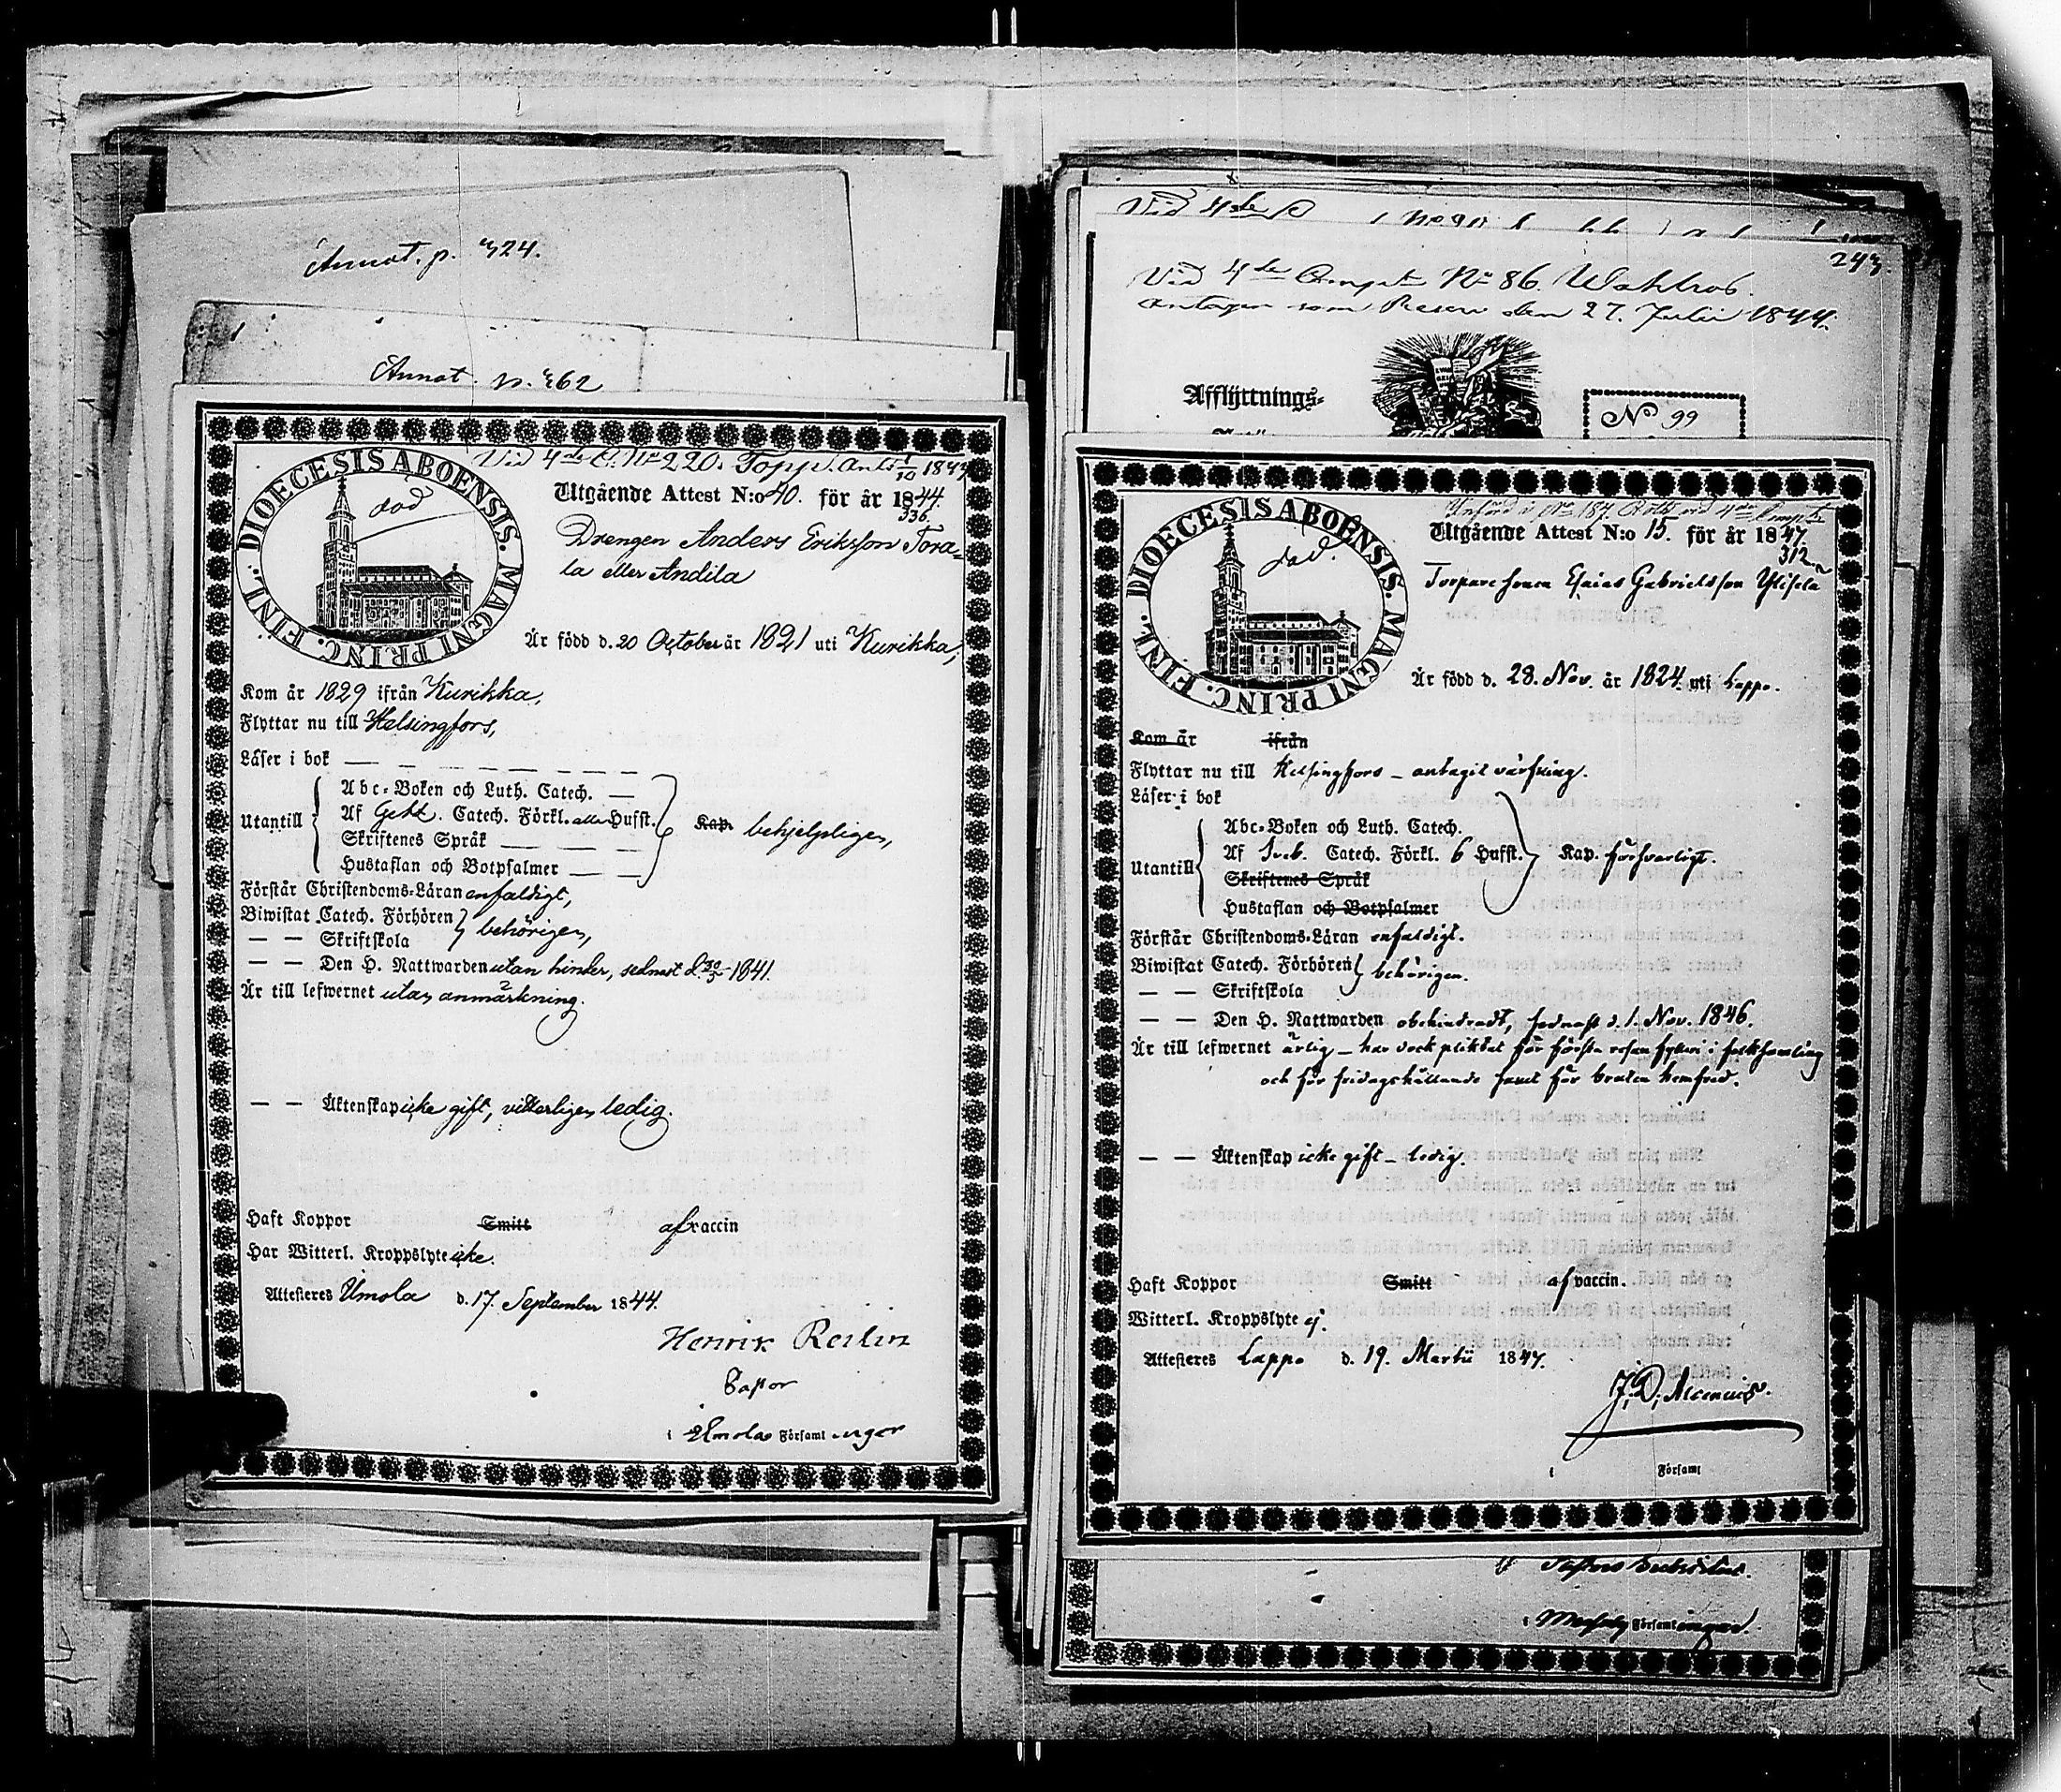 Annot. p. 424.
Annot. p. 462
Vid 4de C. No 220. Topp. Ant. 1/10 1844
DIOECESIS ABOENSIS. MAGNI PRINC. FINL.
död
Utgående Attest N:o 40. för år 1844.
336.
Drengen Anders Eriksson Tora-
la eller Andila
Är född d. 20 October år 1821 uti Kurikka,
Kom år 1829 ifrån Kurikka,
Flyttar nu till Helsingfors,
Läser i bok — — — — — — — —
Utantill
Abc-Boken och Luth. Catech. —
Af Gehl. Catech. Förkl. alla Hufst.
Skriftenes Språk — — — —
Hustaflan och Botpsalmer — —
Kap. behjelpligen,
Förstår Christendoms-Läran enfaldigt,
Biwistat Catech. Förhören
— — Skriftskola
behörigen,
— — Den H. Nattwarden utan hinder, sednast d. 30/5 1841.
Är till lefwernet utan anmärkning.
— — Äktenskap icke gift, vitterligen ledig.
Haft Koppor Smitt af vaccin
Har Witterl. Kroppslyte icke.
Attesteres Ilmola d. 17. September 1844.
Henrik Reilin
Pastor
i Ilmola Församlingar
Vid 4de
No 90
243.
Vid 4de Comp. No 86. Wahlros.
antagen som Reserv den 27. Julii 1844.
Afflyttnings-
No 99
Införd i No 187. Roth vid 4de Comp.
DIOECESIS ABOENSIS. MAGNI PRINC. FINL.
död.
Utgående Attest N:o 15. för år 1847.
312
Torpare sonen Esaias Gabrielsson Ylisela
Är född d. 28. Nov. år 1824. uti Lappo.
Kom år ifrån
Flyttar nu till Helsingfors – antagit värfning.
Läser i bok
Utantill
Abc-Boken och Luth. Catech.
Af Sveb. Catech. Förkl. 6 Hufst.
Skriftenes Språk
Hustaflan och Botpsalmer
Kap. försvarligt.
Förstår Christendoms-Läran enfaldigt.
Biwistat Catech. Förhören
— — Skriftskola
behörigen.
— — Den H. Nattwarden obehindradt, sednast d. 1. Nov. 1846.
Är till lefwernet ärlig – har dock pliktat för första resan fylleri i folksamling
och för fridagshållande samt för bruten hemfred.
— — Äktenskap icke gift – ledig.
Haft Koppor Smitt af vaccin.
Witterl. Kroppslyte ej.
Attesteres Lappo d. 19. Martii 1847.
J. D. Alcenius.
i Församl
i Församlingar.